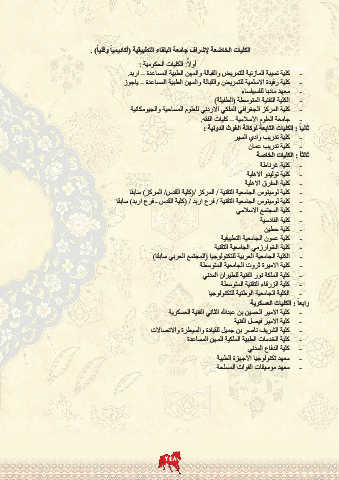 الكليات الخاضعة لإشراف جامعة البلقاء التطبيقية (أكاديمياً وفنياً) .
أولاً: الكليات الحكومية :
- كلية نسيبة المازنية للتمريض والقبالة والمهن الطبية المساعدة – اربد.
- كلية رفيدة الاسلمية للتمريض والقبالة والمهن الطبية المساعدة – ياجوز
- معهد مادبا للفسيفساء
- الكلية التقنية المتوسطة (الطفيلة)
- كلية المركز الجغرافي الملكي الاردني للعلوم المساحية والجيوماتكية
- جامعة العلوم الاسلامية – كليات الفقه.
ثانياً : الكليات التابعة لوكالة الغوث الدولية :
- كلية تدريب وادي السير
- كلية تدريب عمان
ثالثاً : الكليات الخاصة
- كلية غرناطة
- كلية توليدو الاهلية
- كلية المفرق الاهلية
- كلية لومينوس الجامعية التقنية / المركز /(كلية القدس/ المركز) سابقا
- كلية لومينوس الجامعية التقنية / فرع اربد / (كلية القدس- فرع اربد) سابقا
- كلية المجتمع الاسلامي
- كلية القادسية
- كلية حطين
- كلية عمون الجامعية التطبيقية
- كلية الخوارزمي الجامعية التقنية
- الكلية الجامعية العربية للتكنولوجيا (المجتمع العربي سابقا)
- كلية الاميرة ثروت الجامعية المتوسطة
- كلية الملكة نور الفنية للطيران المدني
- كلية الزرقاء التقنية المتوسطة
- الكلية الجامعية الوطنية للتكنولوجيا
رابعاً : الكليات العسكرية
- كلية الامير الحسين بن عبدالله الثاني الفنية العسكرية
- كلية الامير فيصل الفنية
- كلية الشريف ناصر بن جميل للقيادة والسيطرة والاتصالات
- كلية الخدمات الطبية الملكية للمهن المساعدة
- كلية الدفاع المدني
- معهد تكنولوجيا الاجهزة الطبية
- معهد موسيقات القوات المسلحة